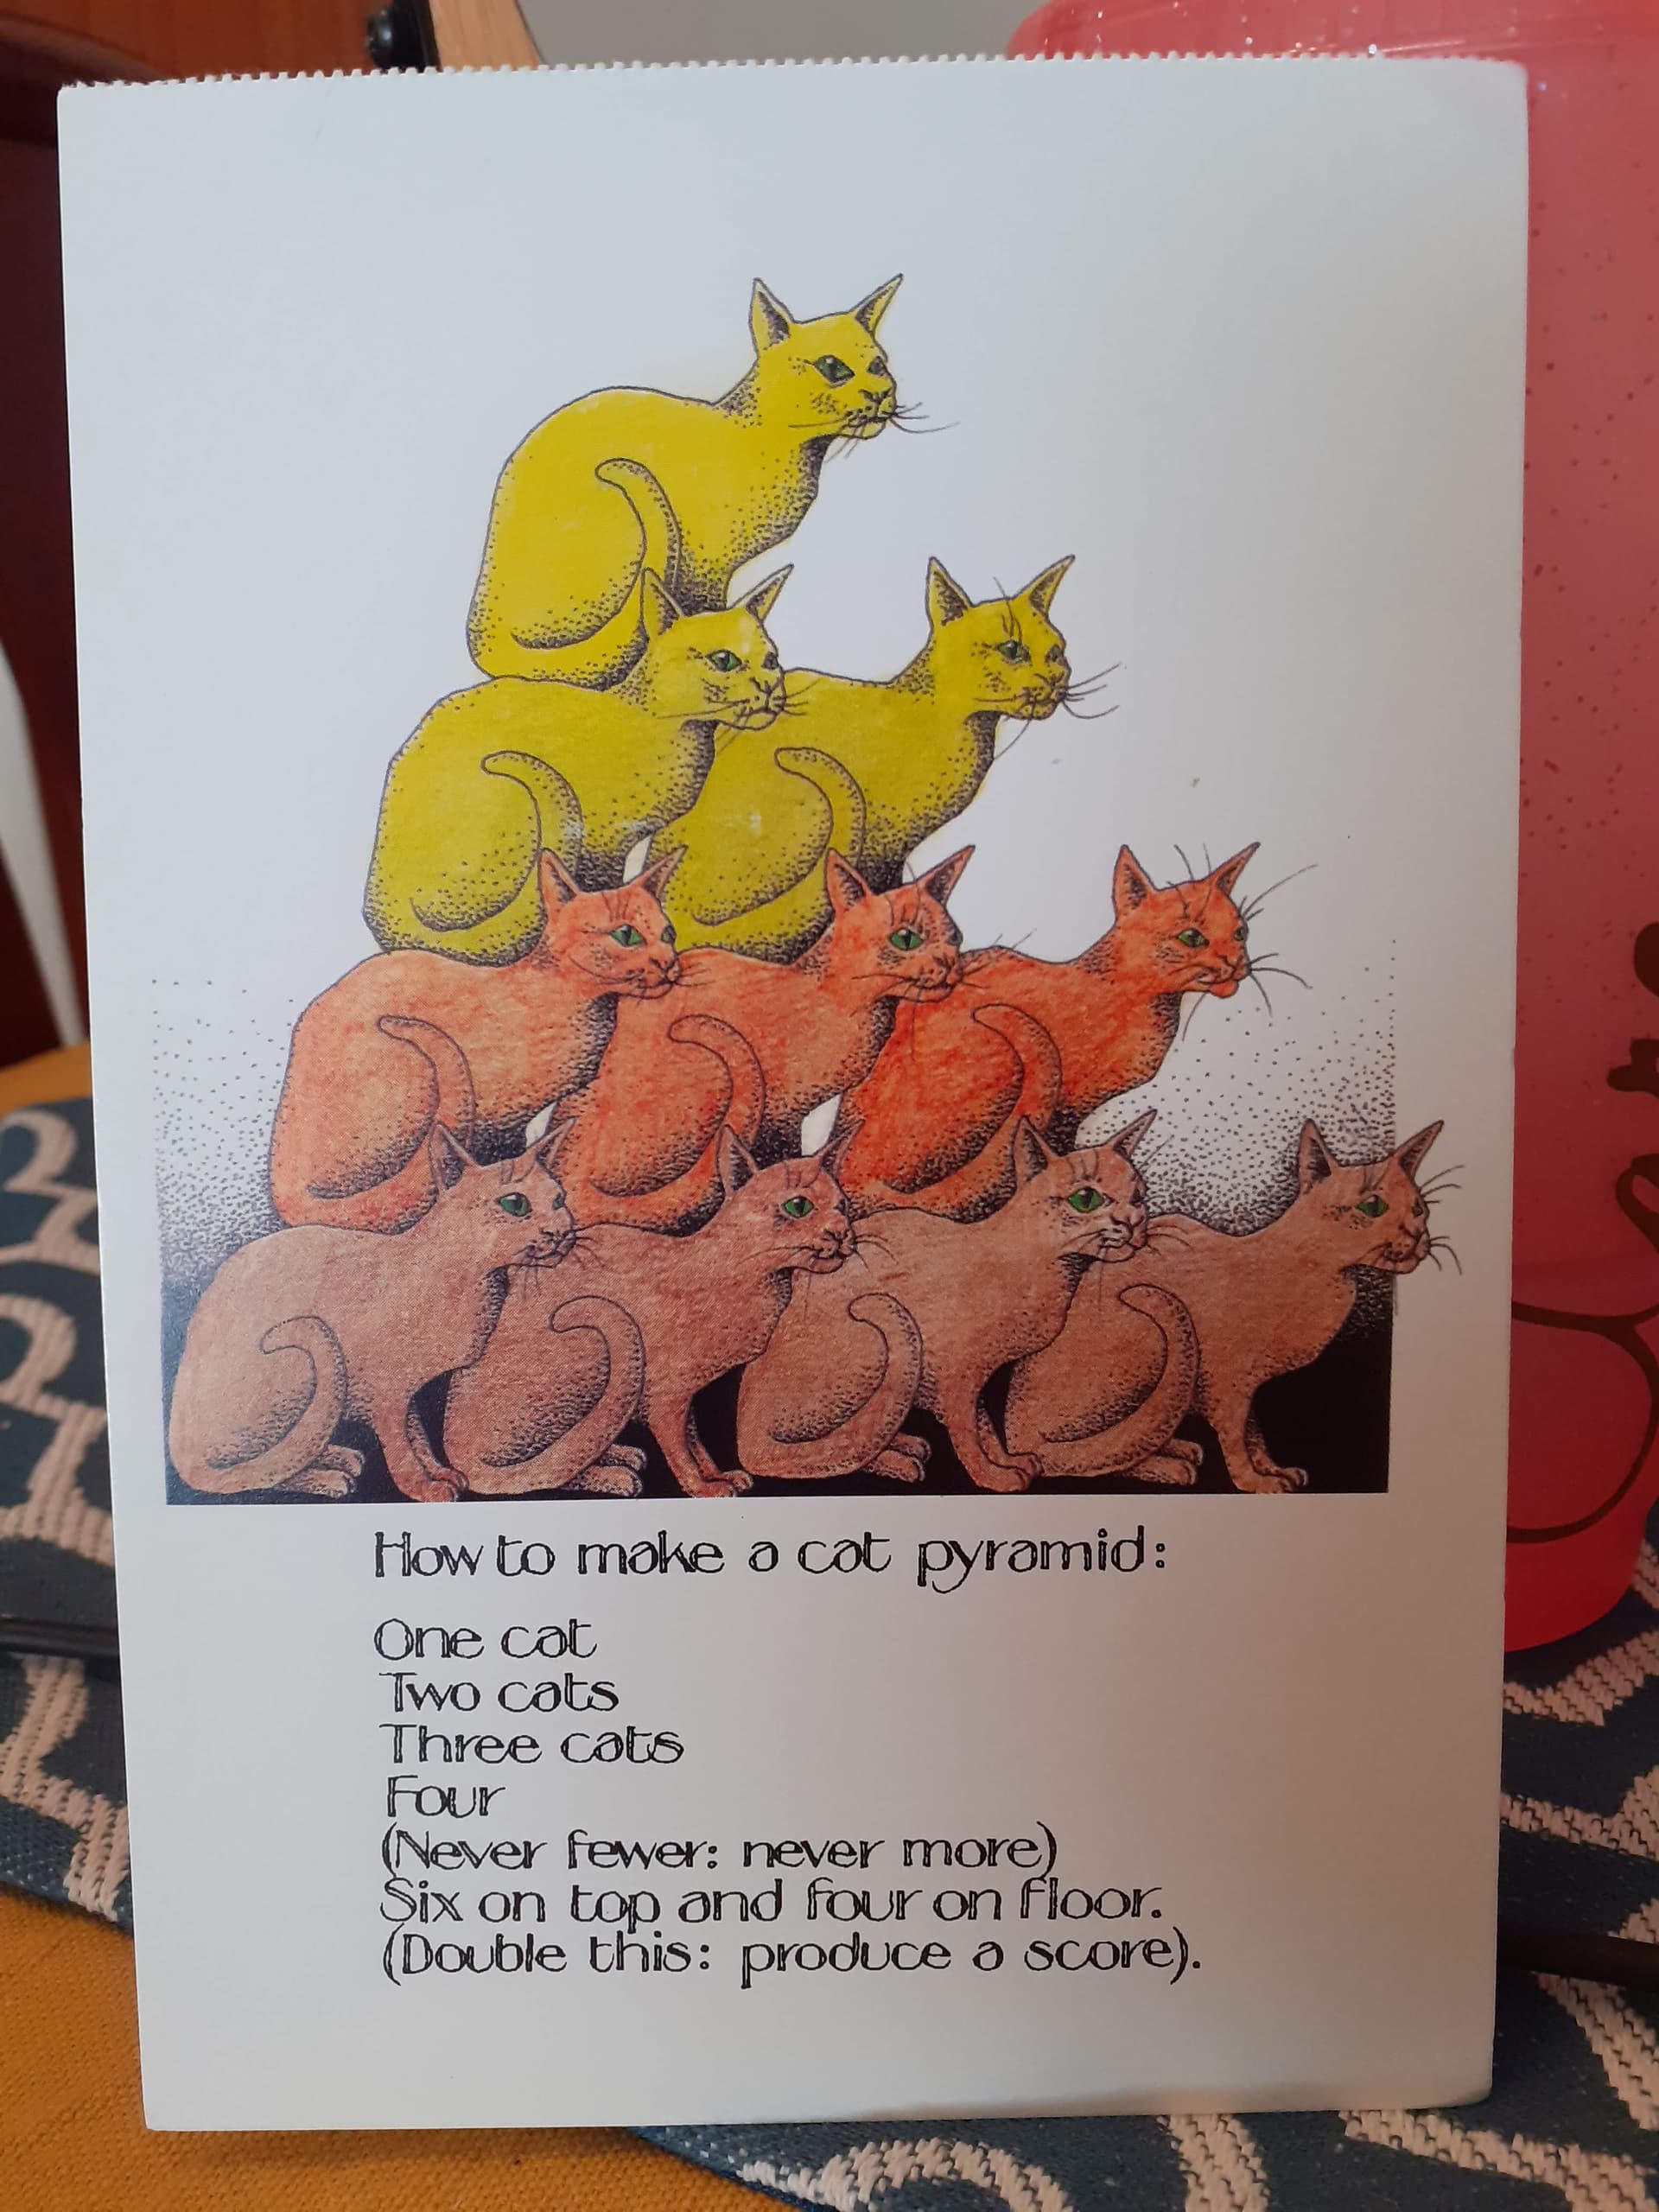 How to make a cat pyramid:
One cat
Two cats
Three cats
Four
(Never fewer: never more)
Six on top and four on floor.
(Double this: produce a score).